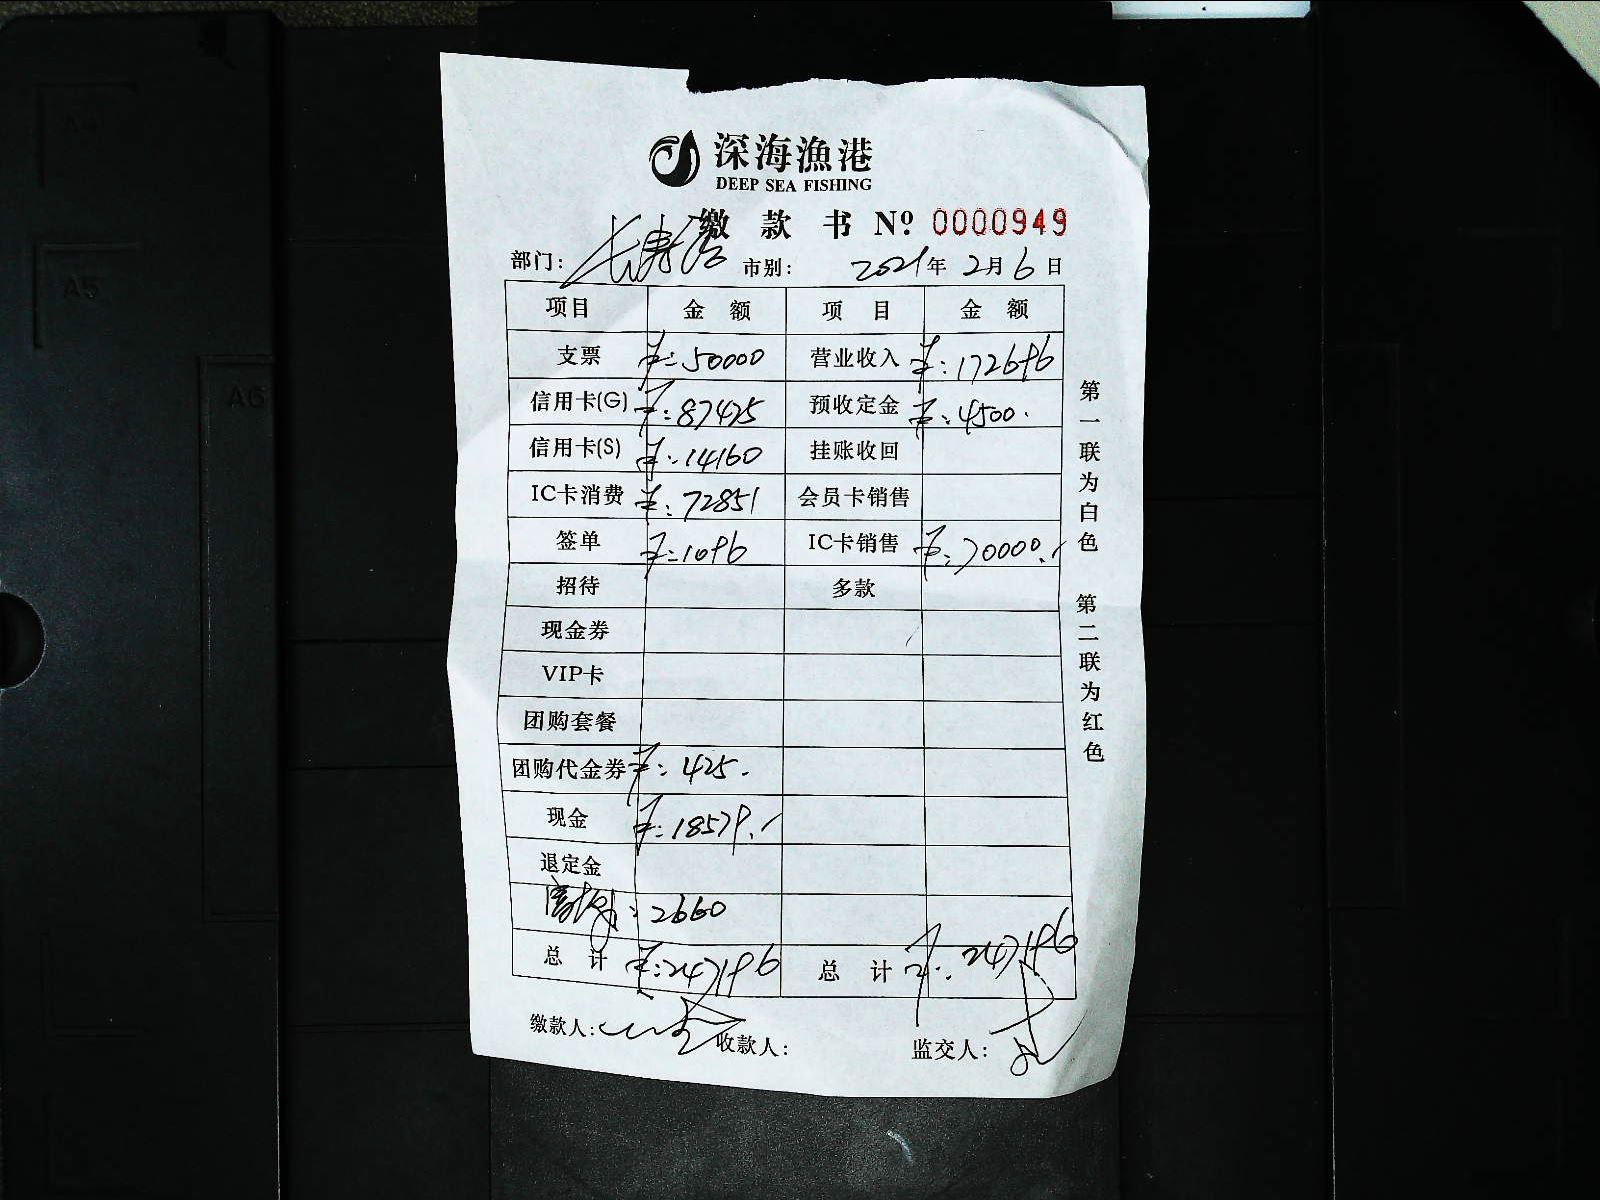 A4
A5
A6
深海渔港
DEEP SEA FISHING
缴 款 书 Nº 0000949
部门： 市别： 2021年 2月 6日
项目 金 额 项 目 金 额
支票 ¥:50000 营业收入 ¥:172696
信用卡(G) ¥:87425 预收定金 ¥:4500.
信用卡(S) ¥:14160 挂账收回
IC卡消费 ¥:72851 会员卡销售
签单 ¥:1096 IC卡销售 ¥:70000.
招待 多款
现金券
VIP卡
团购套餐
团购代金券 ¥:425.
现金 ¥:18579.
退定金
:2660
总 计 ¥:247196 总 计 ¥:247196
缴款人： 收款人： 监交人：
第一联为白色 第二联为红色